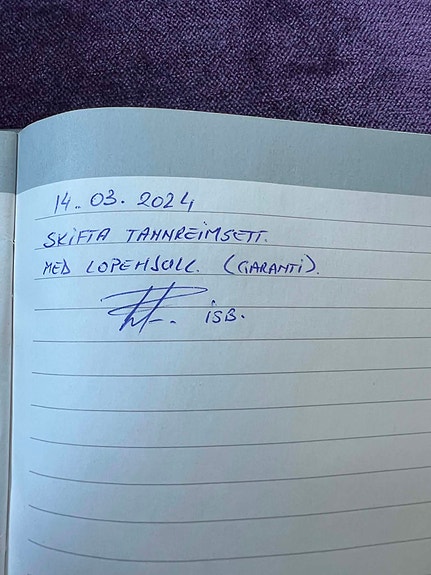 14.. 03. 2024
SKIFTA TANNREIMSETT.
MED LOPEHJULL. (GARANTI).
ISB.